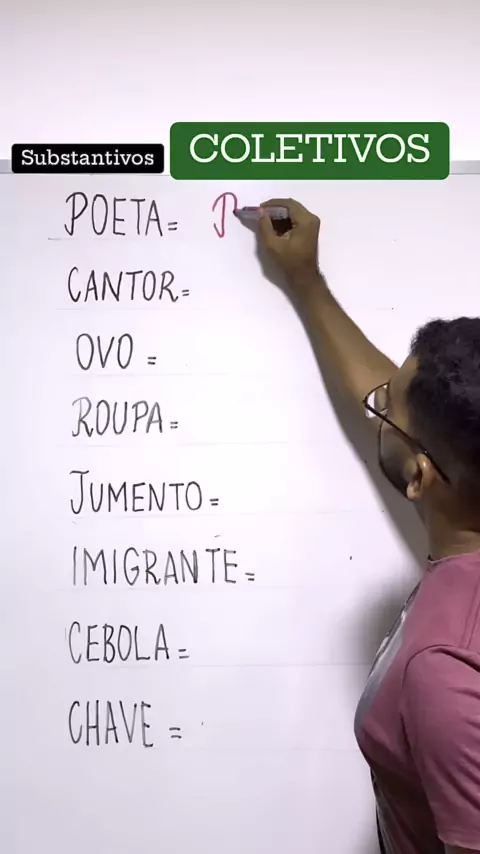 Substantivos COLETIVOS
POETA = P
CANTOR =
OVO =
ROUPA =
JUMENTO =
IMIGRANTE =
CEBOLA =
CHAVE =